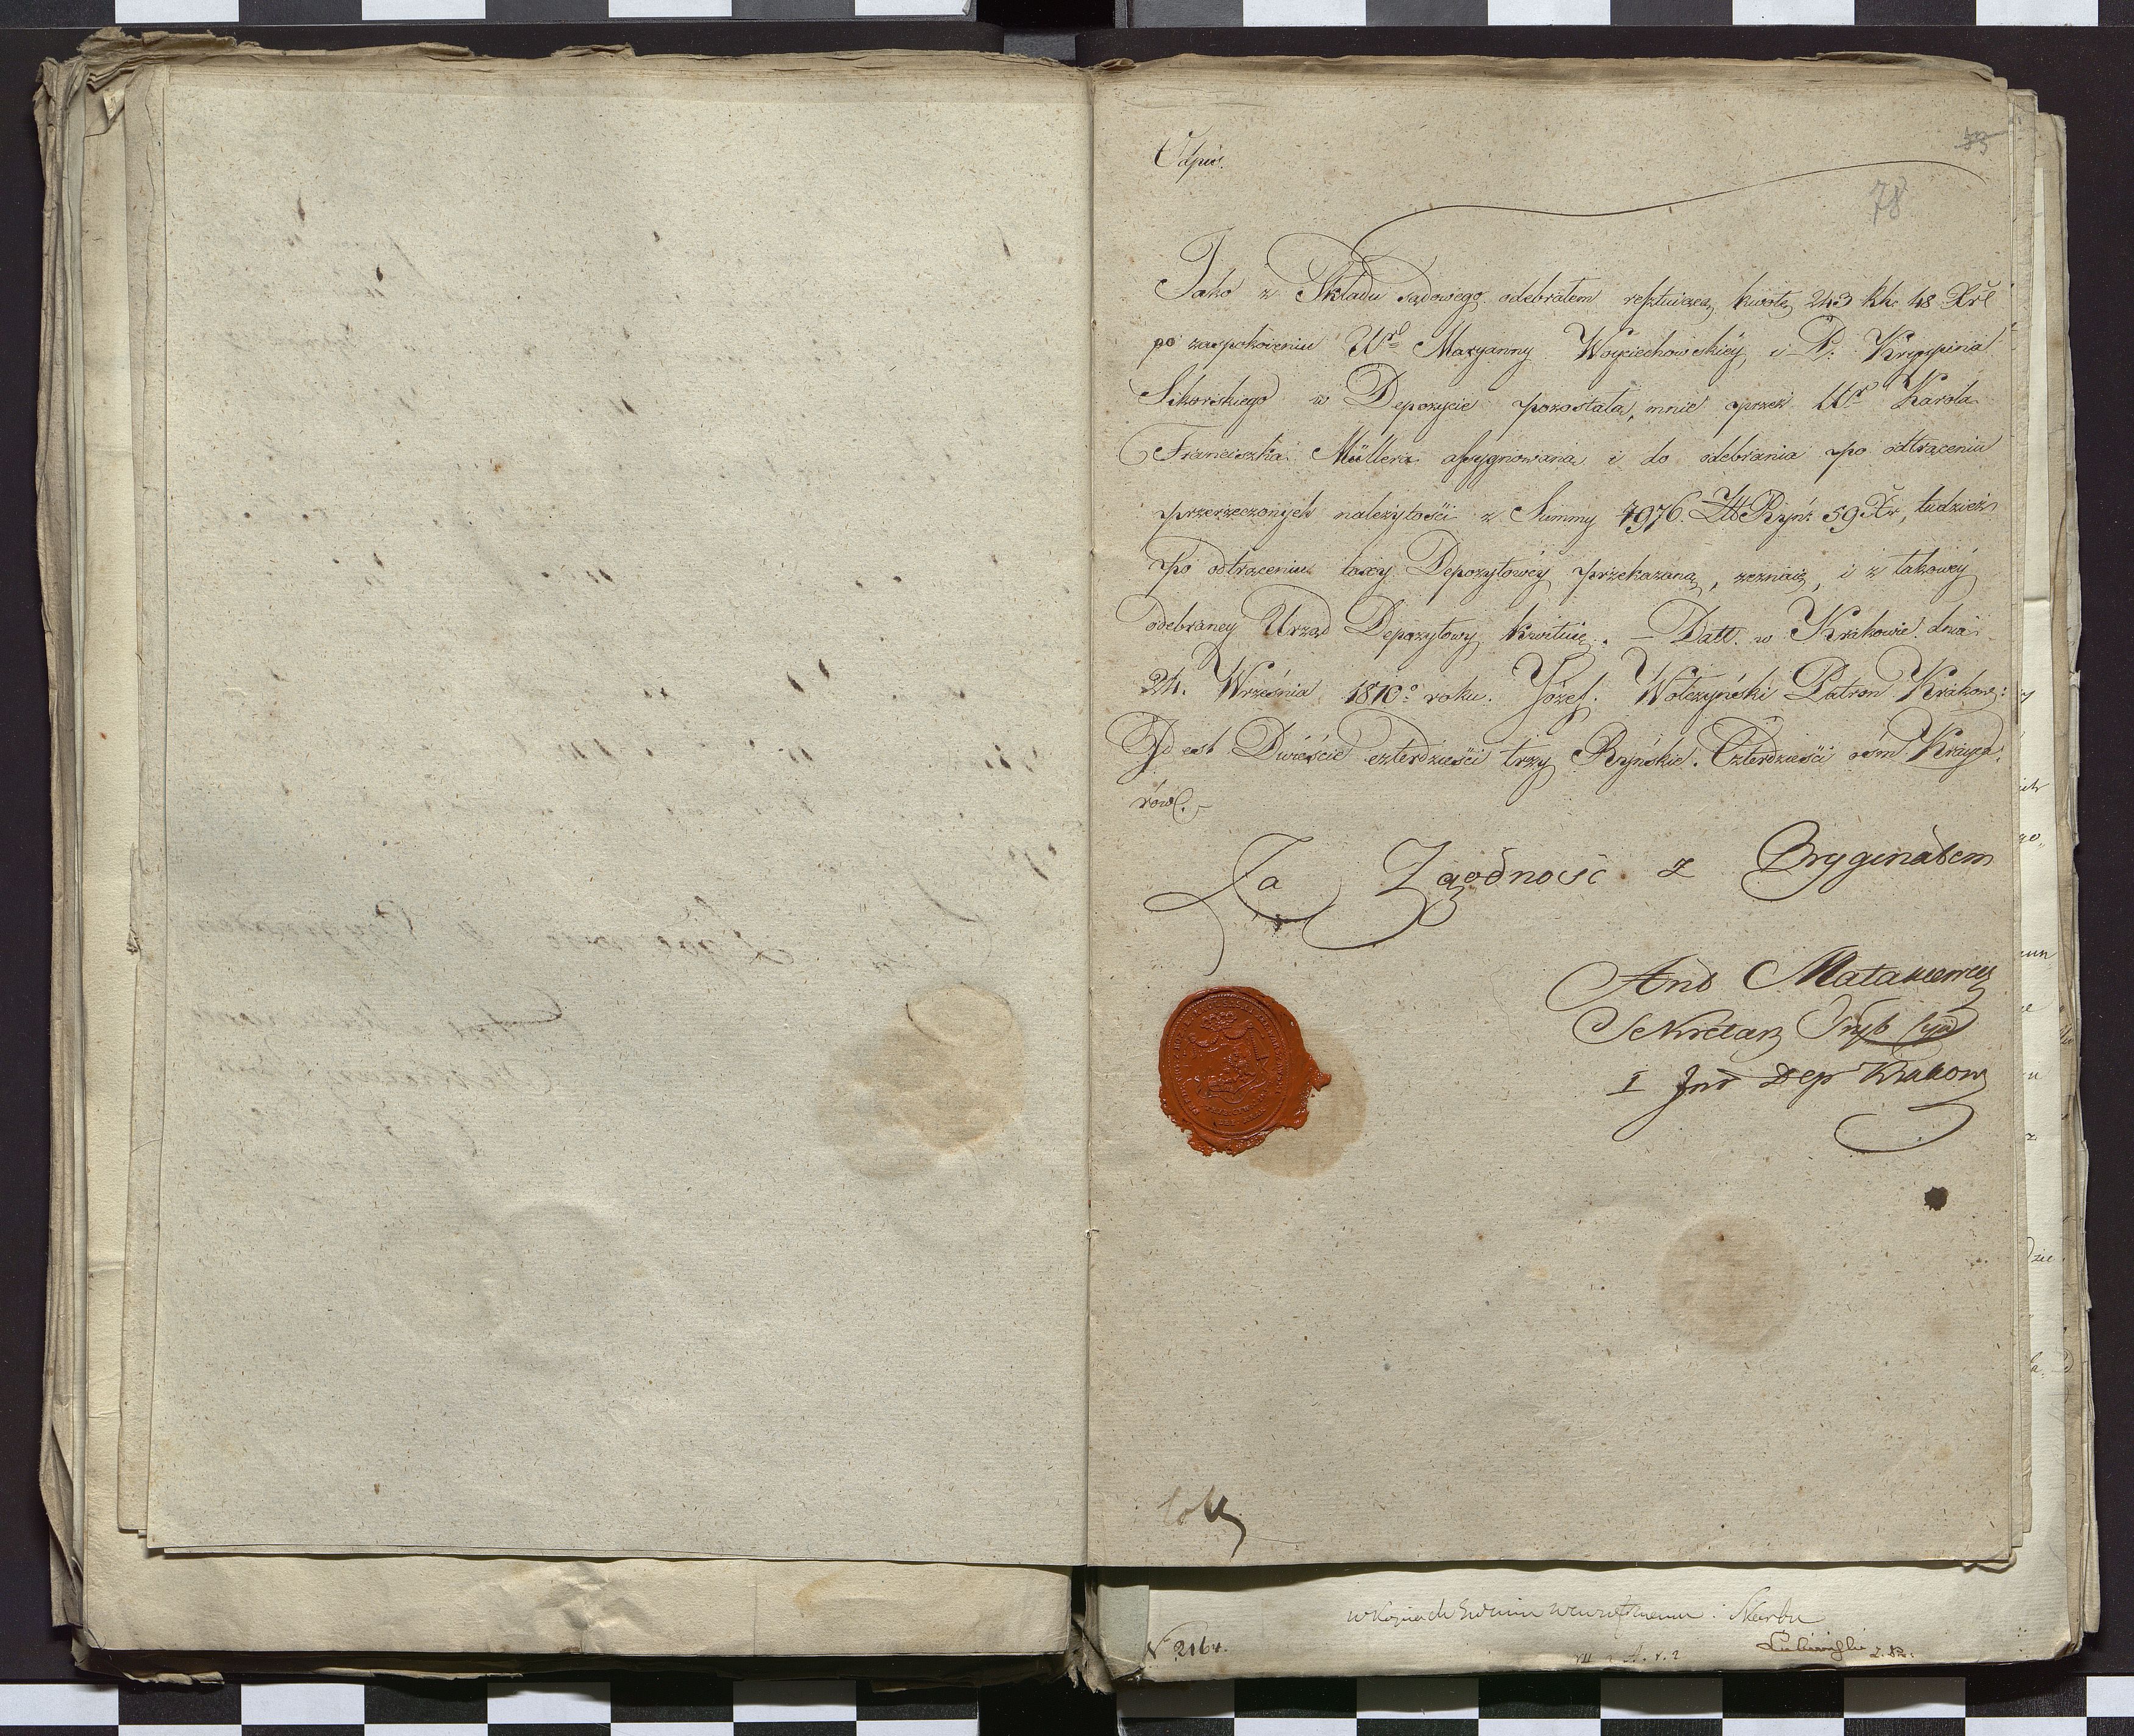 Odpis.
78
Jako z Składu sądowego odebrałem resztuiącą kwotę 243 Rh. 48 Xrċ
po zaspokoieniu Ur. Maryanny Woyciechowskiéy i P. Kryspina
Sikorskiego w Depozycie pozostałą, mnie przez Ur. Karola
Franciszka Müllera assygnowaną i do odebrania po odtrąceniu
przerzeczonych należytości z Summy 4976. Złt Ryń: 59 Xr, tudzież
po odtrąceniu taxy Depozytowéy przekazaną, zeznaię, i z takowéy
odebraney Urząd Depozytowy kwituię. – Datt. w Krakowie dnia
24. Września 1810º roku. Józef Wolczyński Patron Krakows:
Id est Dwieście czterdzieści trzy Ryńskie. Czterdzieści ośm Krayca,
rów. –
Za Zgodność z Oryginałem
And Matakiewicz
Sekretarz Tryb Cyw
I Ins Dep Krakow
N 2164.